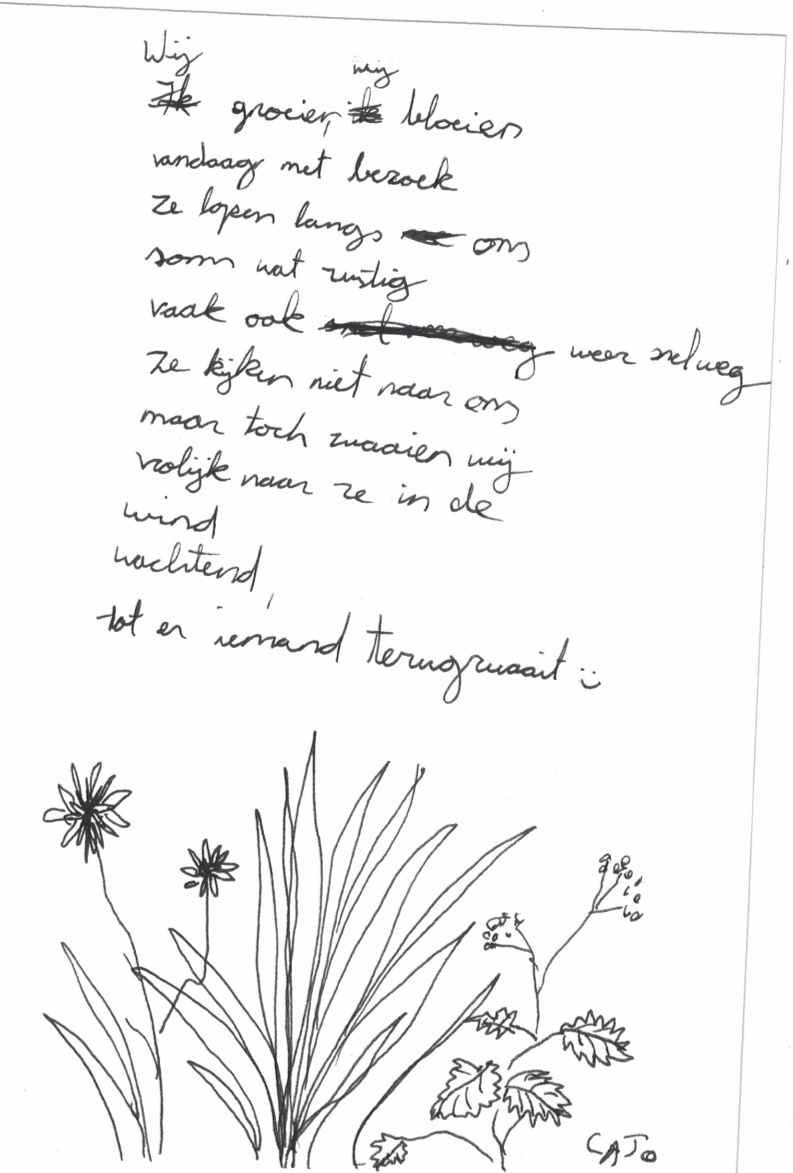 Wij wij
~~Ik~~ groeien, ~~ik~~ bloeien
vandaag met bezoek
ze lopen langs ons
soms wat rustig
vaak ook weer snel weg
Ze kijken niet naar ons
maar toch zwaaien wij
vrolijk naar ze in de
wind
wachtend,
tot er iemand terugzwaait :)
CATO